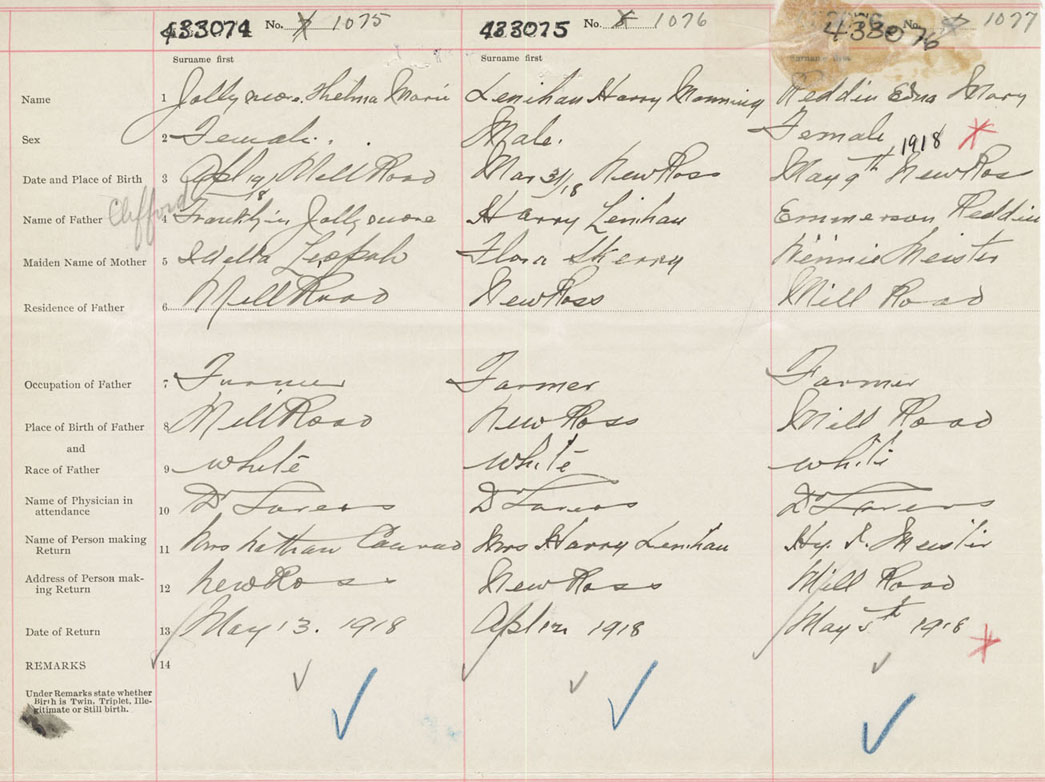 433074 No. 1075 433075 No. 1076 433076 No. 1077
Surname first Surname first Surname first
Name 1 Jollymore Thelma Marie Lenihan Harry Manning Reddin Edna Mary
Sex 2 Female. Male. Female
1918
Date and Place of Birth 3 Apl 19/18 Mill Road Mar 31/18 New Ross May 9th New Ross
Clifford
Name of Father 4 Franklyn Jollymore Harry Lenihan Emmerson Reddin
Maiden Name of Mother 5 Flora Skerry Winnie Meister
Residence of Father 6 Mill Road New Ross Mill Road
Occupation of Father 7 Farmer Farmer Farmer
Place of Birth of Father 8 Mill Road New Ross Mill Road
and
Race of Father 9 white white white
Name of Physician in
attendance 10 Dr Dr Dr
Name of Person making
Return 11 Mrs Nathan Conrad Mrs Harry Lenihan Hy. Meister
Address of Person mak-
ing Return 12 New Ross New Ross Mill Road
Date of Return 13 May 13. 1918 Apl 12 1918 May 5th 1918
REMARKS 14
Under Remarks state whether
Birth is Twin, Triplet, Ille-
gitimate or Still birth.